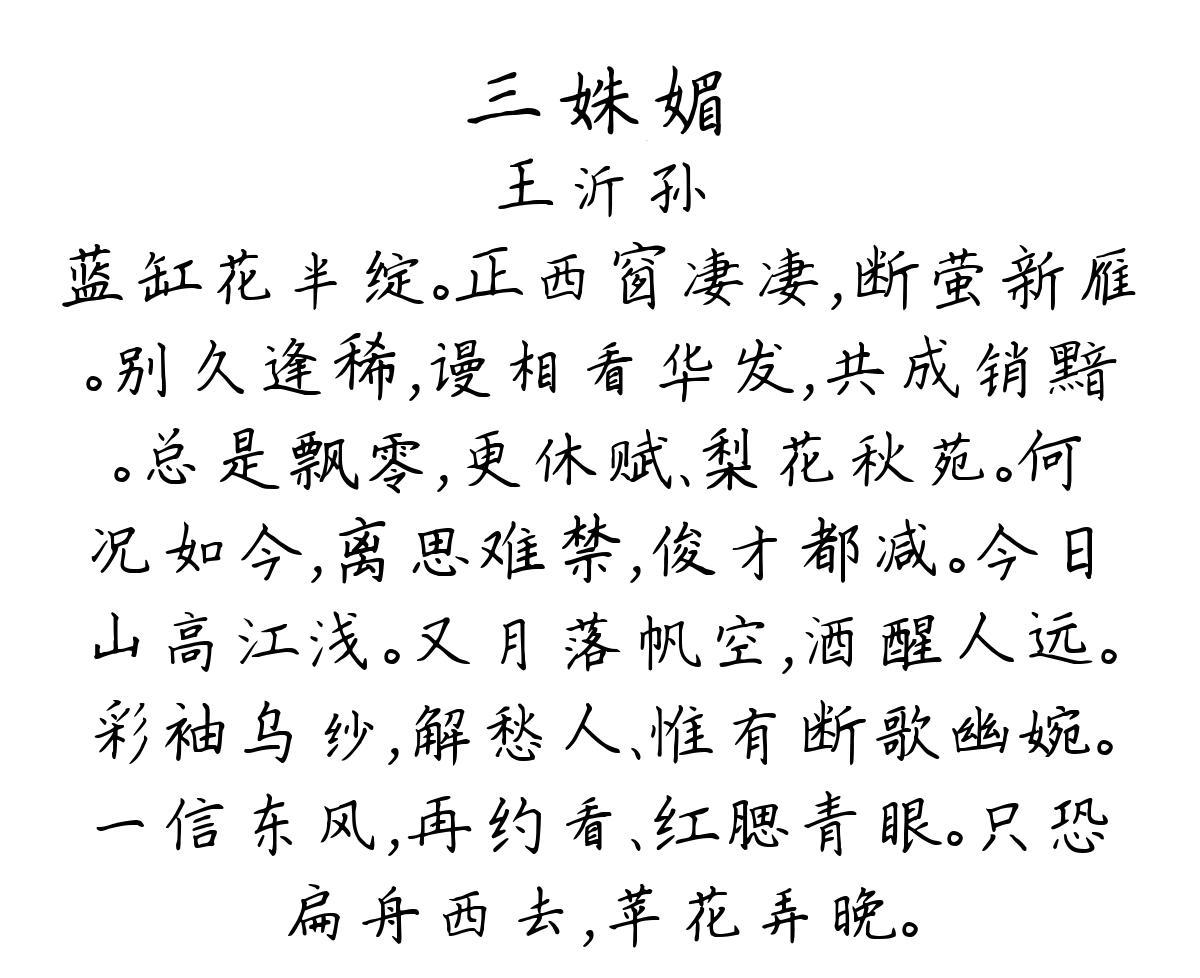 三姝媚
王沂孙
蓝缸花半绽。正西窗凄凄,断萤新雁
。别久逢稀,谩相看华发,共成销黯
。总是飘零,更休赋、梨花秋苑。何
况如今,离思难禁,俊才都减。今日
山高江浅。又月落帆空,酒醒人远。
彩袖乌纱,解愁人、惟有断歌幽婉。
一信东风,再约看、红腮青眼。只恐
扁舟西去,苹花弄晚。